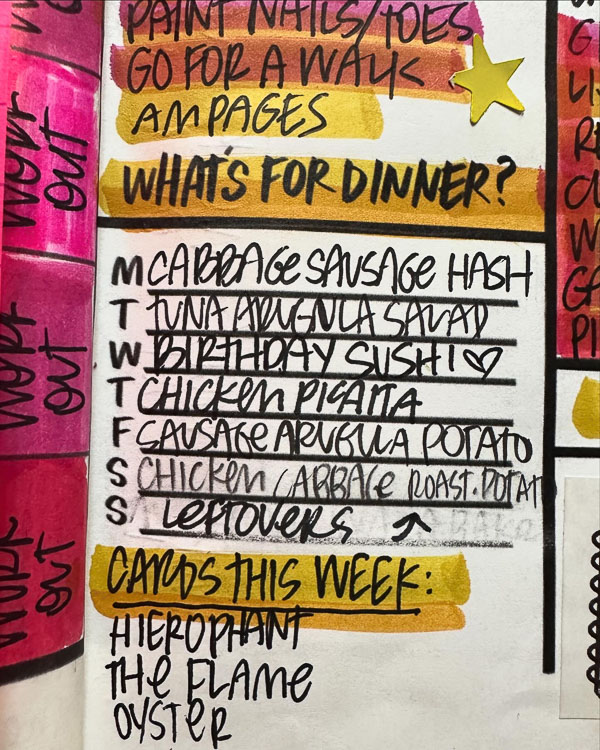 PAINT NAILS/TOES
GO FOR A WALK
AM PAGES
WHAT'S FOR DINNER?
M CABBAGE SAUSAGE HASH
T TUNA ARUGULA SALAD
W BIRTHDAY SUSHI ♡
T CHICKEN PICATTA
F SAUSAGE ARUGULA POTATO
S CHICKEN CABBAGE ROAST. POTAT
S LEFTOVERS
CARDS THIS WEEK:
HIEROPHANT
THE FLAME
OYSTER
WORK OUT
WORK OUT
WORK OUT